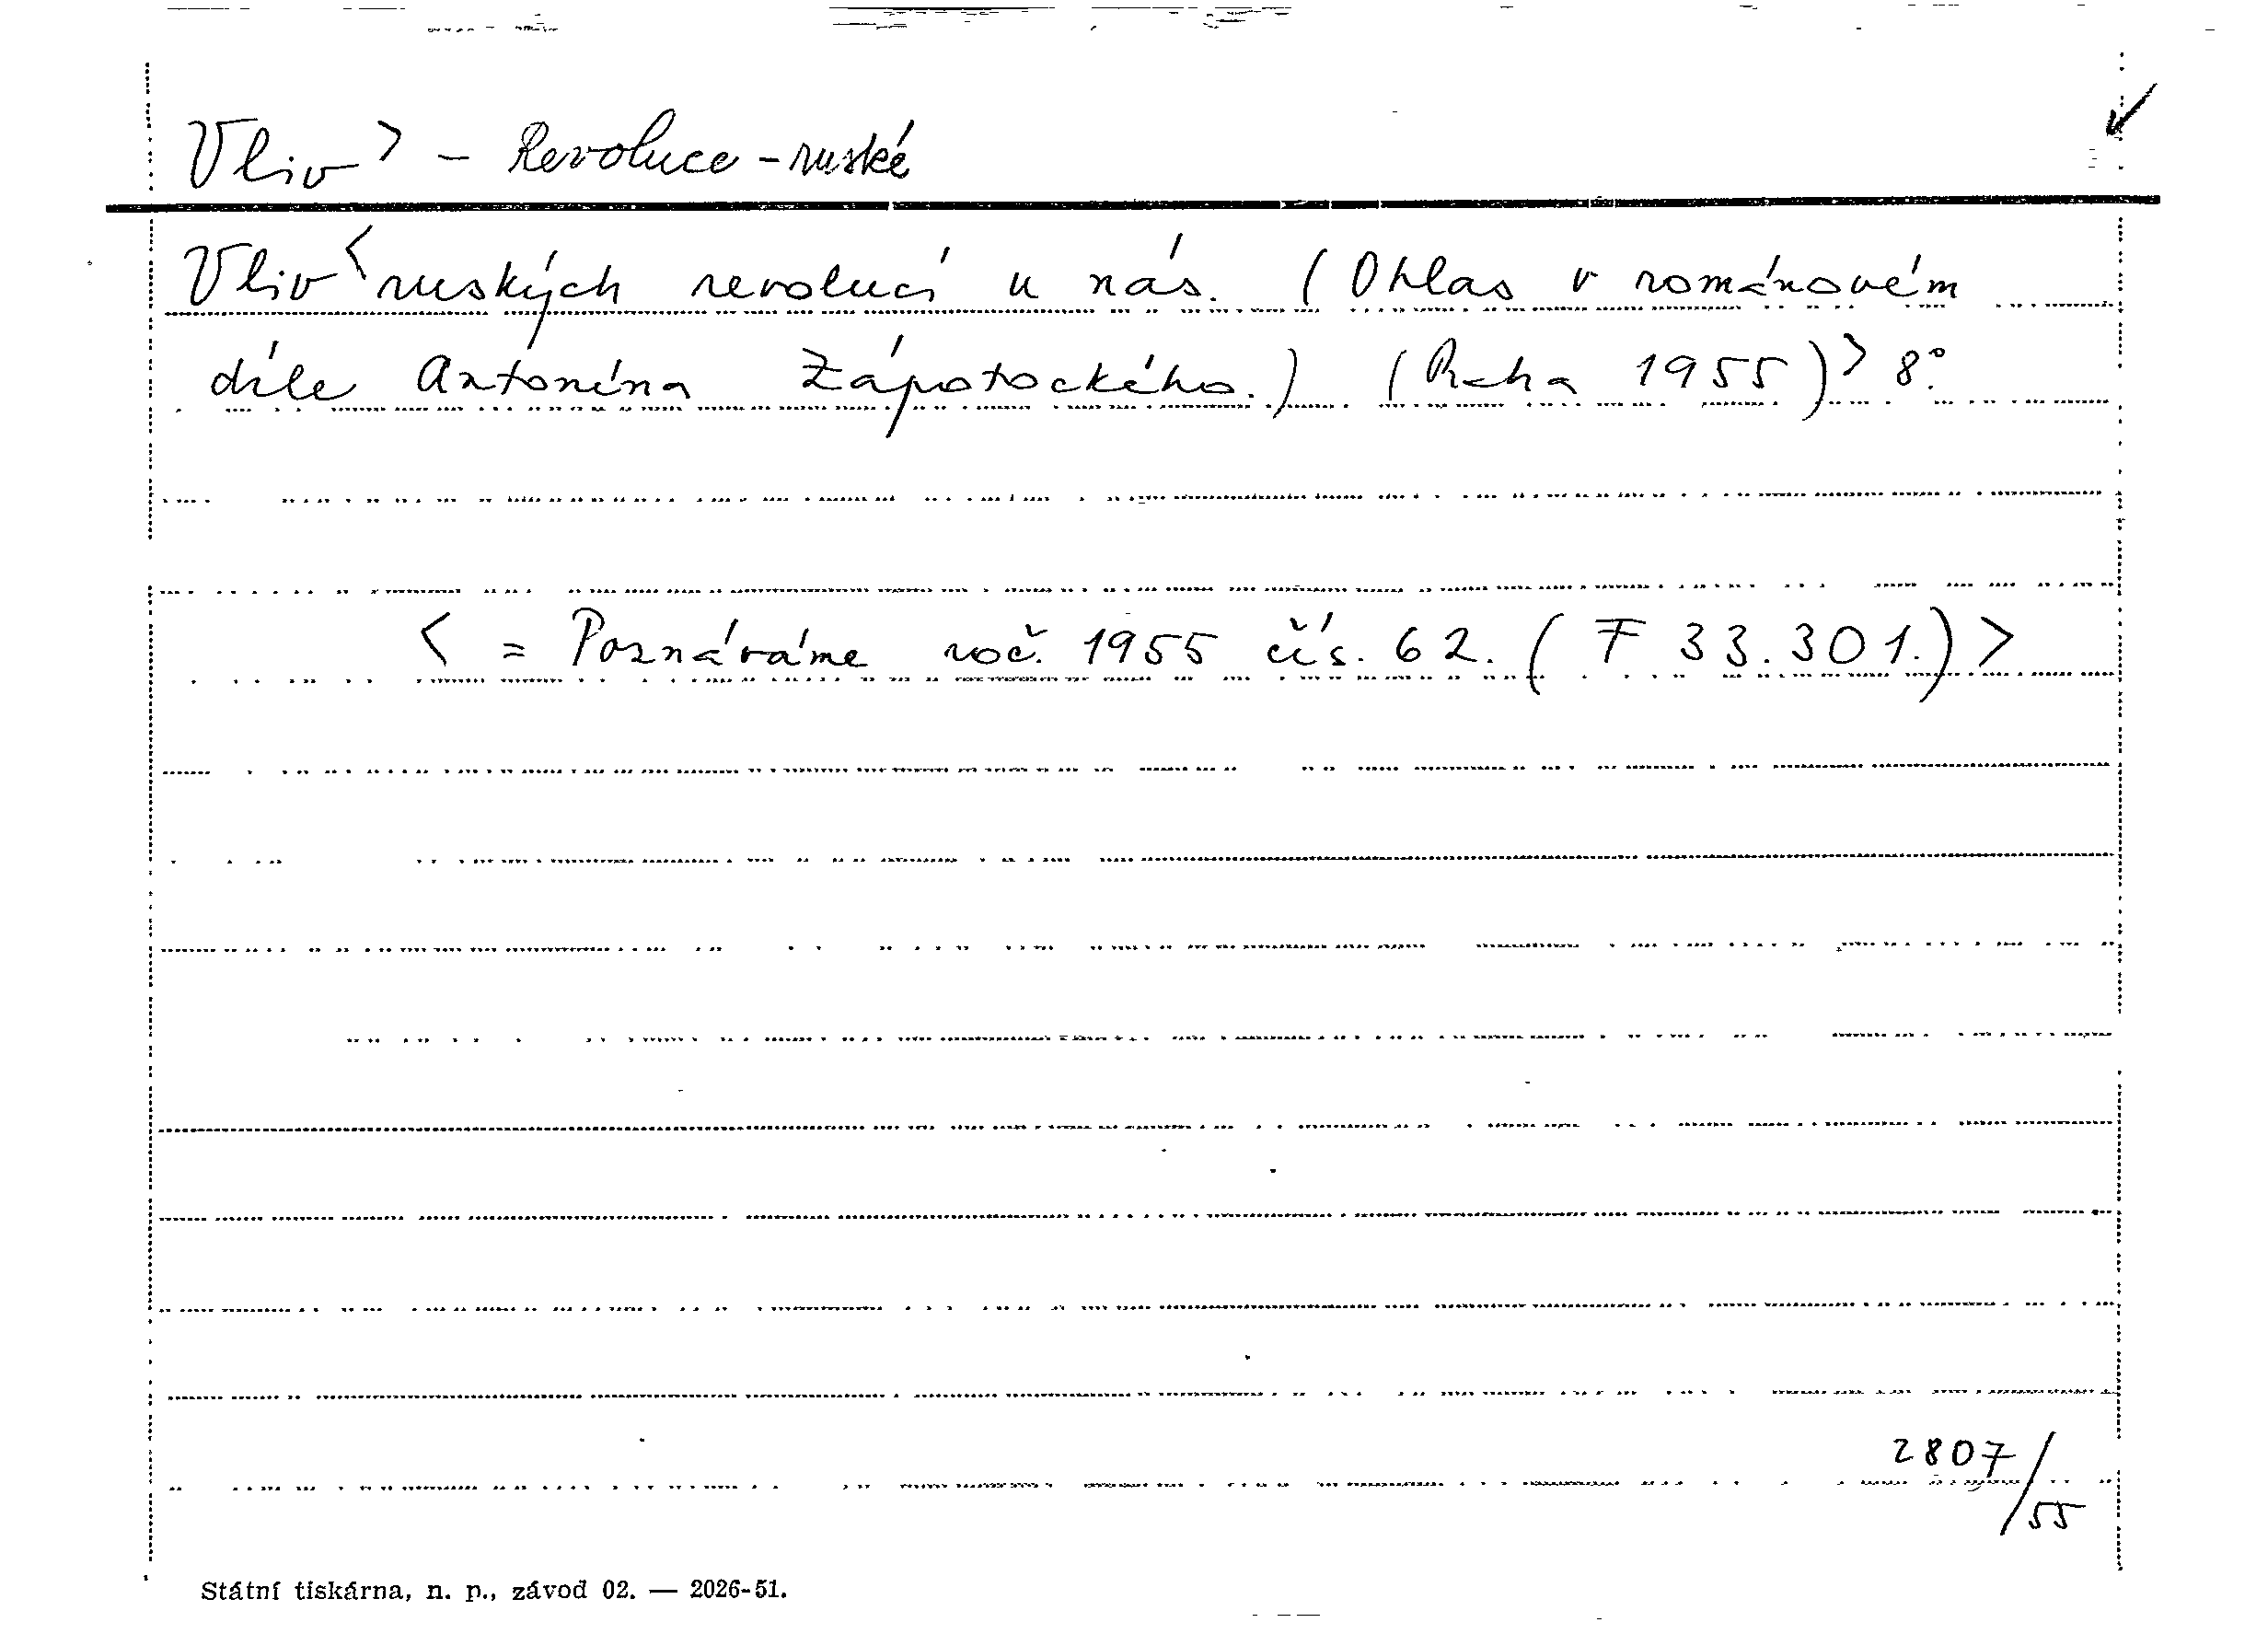 Vliv> - Revoluce - ruské
Vliv <ruských revolucí u nás. (Ohlas v románovém
díle Antonína Zápotockého.) (Praha 1955)> 8°.
< = Poznáváme roč. 1955 čís. 62. (F 33.301.) >
2807/
55
Státní tiskárna, n. p., závod 02. — 2026-51.